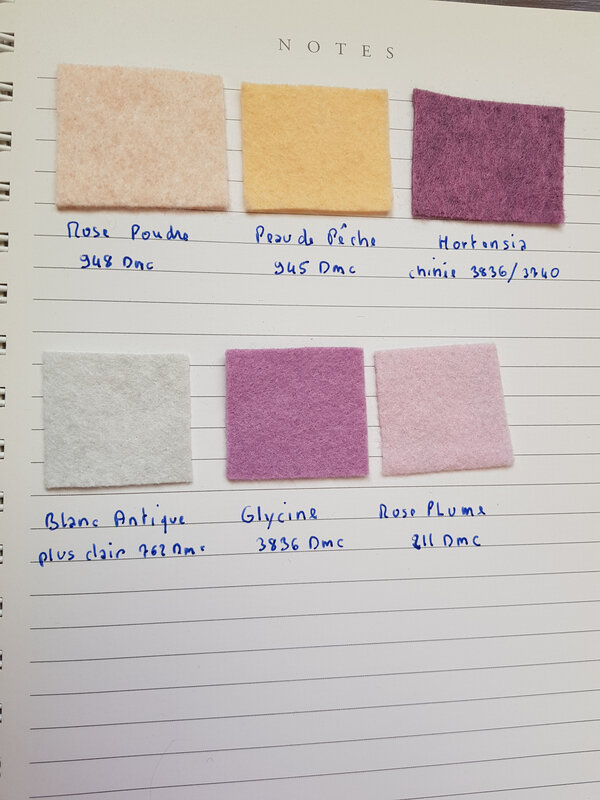 NOTES
Rose Poudre
948 Dmc
Peau de Pêche
945 Dmc
Hortensia
chinie 3836/3740
Blanc Antique
plus clair 762 Dmc
Glycine
3836 Dmc
Rose Plume
211 Dmc